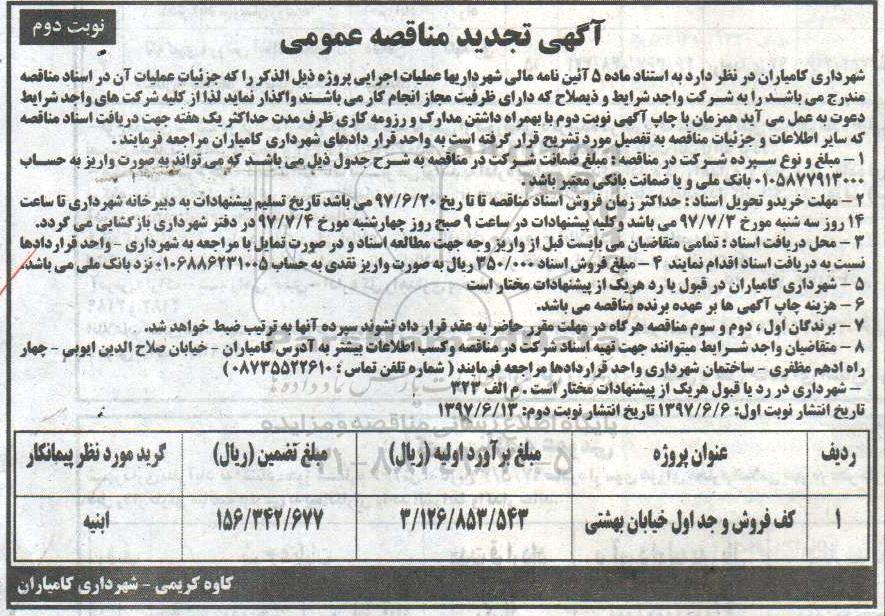 نوبت دوم
آگهی تجدید مناقصه عمومی
شهرداری کامیاران در نظر دارد به استناد ماده ۵ آئین نامه مالی شهرداریها عملیات اجرایی پروژه ذیل الذکر را که جزئیات عملیات آن در اسناد مناقصه
مندرج می باشد را به شرکت واجد شرایط و ذیصلاح که دارای ظرفیت مجاز انجام کار می باشند واگذار نماید لذا از کلیه شرکت های واجد شرایط
دعوت به عمل می آید همزمان با چاپ آگهی نوبت دوم با بهمراه داشتن مدارک و رزومه کاری ظرف مدت حداکثر یک هفته جهت دریافت اسناد مناقصه
که سایر اطلاعات و جزئیات مناقصه به تفصیل مورد تشریح قرار گرفته است به واحد قرار دادهای شهرداری کامیاران مراجعه فرمایند .
۱ – مبلغ و نوع سپرده شرکت در مناقصه : مبلغ ضمانت شرکت در مناقصه به شرح جدول ذیل می باشد که می تواند به صورت واریز به حساب
۰۱۰۵۸۷۷۹۱۳۰۰۰ بانک ملی و یا ضمانت بانکی معتبر باشد.
۲ – مهلت خرید و تحویل اسناد : حداکثر زمان فروش اسناد مناقصه تا تاریخ ۹۷/۶/۲۰ می باشد تاریخ تسلیم پیشنهادات به دبیرخانه شهرداری تا ساعت
۱۴ روز سه شنبه مورخ ۹۷/۷/۳ می باشد وکلیه پیشنهادات در ساعت ۹ صبح روز چهارشنبه مورخ ۹۷/۷/۴ در دفتر شهرداری بازگشایی می گردد.
۳ – محل دریافت اسناد : تمامی متقاضیان می بایست قبل از واریز وجه جهت مطالعه اسناد و در صورت تمایل با مراجعه به شهرداری – واحد قراردادها
نسبت به دریافت اسناد اقدام نمایند ۴ – مبلغ فروش اسناد ۳۵۰/۰۰۰ ریال به صورت واریز نقدی به حساب ۰۱۰۶۸۸۶۲۳۱۰۰۵ نزد بانک ملی می باشد.
۵ – شهرداری کامیاران در قبول یا رد هریک از پیشنهادات مختار است
۶ – هزینه چاپ آگهی ها بر عهده برنده مناقصه می باشد.
۷ – برندگان اول ، دوم و سوم مناقصه هرگاه در مهلت مقرر حاضر به عقد قرار داد نشوند سپرده آنها به ترتیب ضبط خواهد شد.
۸ – متقاضیان واجد شرایط میتوانند جهت تهیه اسناد شرکت در مناقصه وکسب اطلاعات بیشتر به آدرس کامیاران – خیابان صلاح الدین ایوبی – چهار
راه ادهم مظفری – ساختمان شهرداری واحد قراردادها مراجعه فرمایند ( شماره تلفن تماس ؛ ۰۸۷۳۵۵۲۲۶۱۰ )
– شهرداری در رد یا قبول هریک از پیشنهادات مختار است . م الف ۳۲۳
تاریخ انتشار نوبت اول: ۱۳۹۷/۶/۶ تاریخ انتشار نوبت دوم: ۱۳۹۷/۶/۱۳
ردیف عنوان پروژه مبلغ برآورد اولیه (ریال) مبلغ تضمین (ریال) گرید مورد نظر پیمانکار
۱ کف فروش و جداول خیابان بهشتی ۳/۱۲۶/۸۵۳/۵۴۳ ۱۵۶/۳۴۲/۶۷۷ ابنیه
کاوه کریمی – شهرداری کامیاران